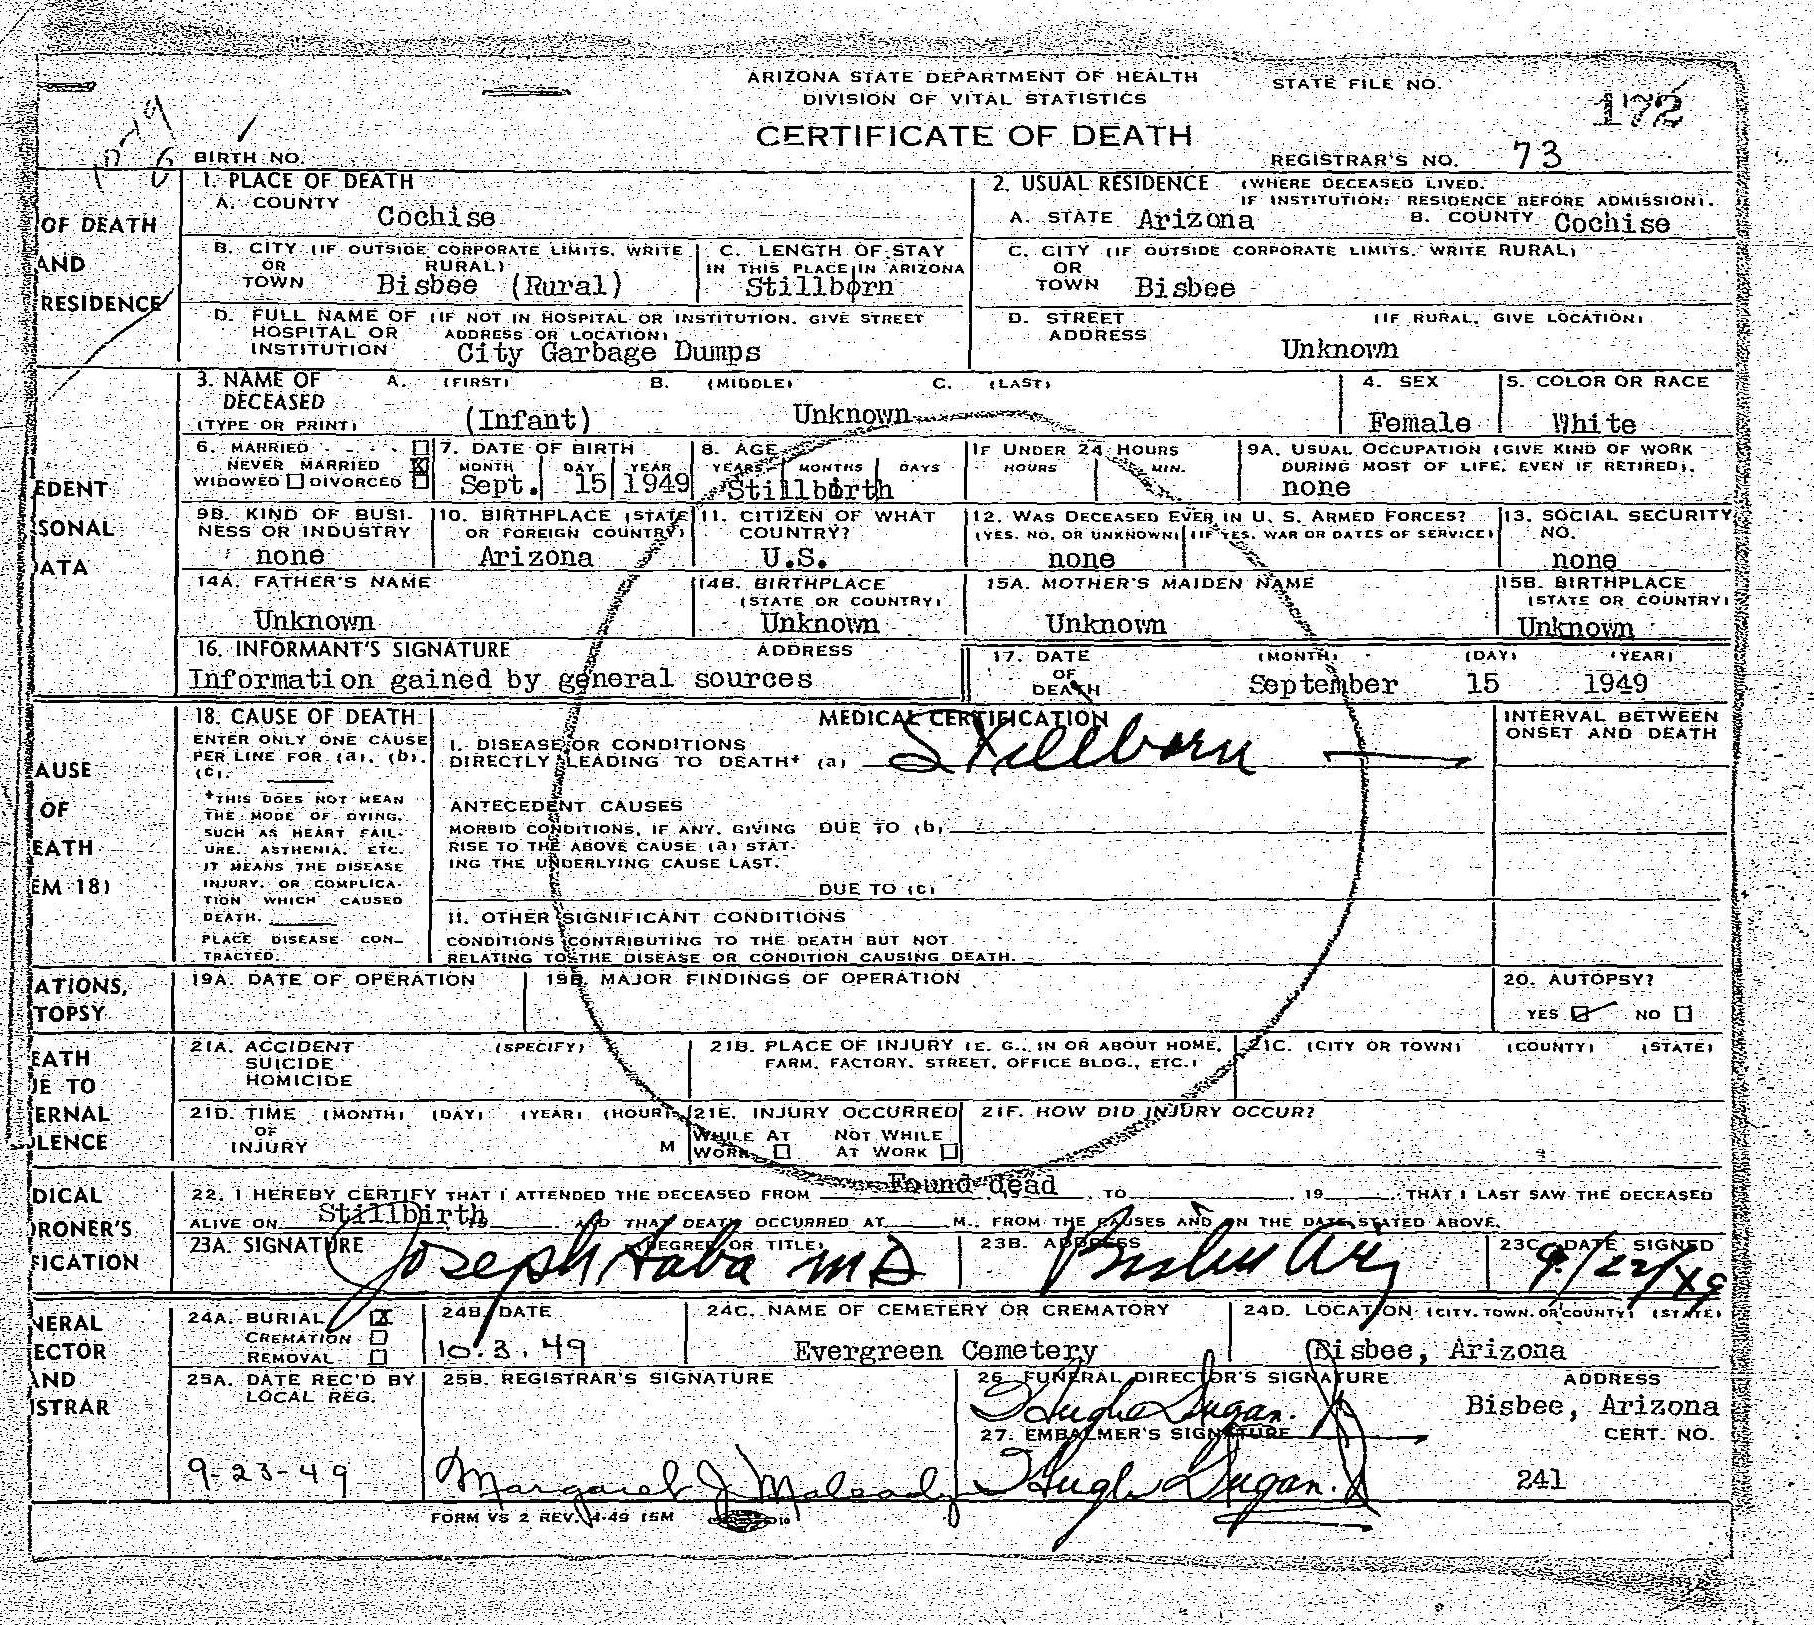 ARIZONA STATE DEPARTMENT OF HEALTH
DIVISION OF VITAL STATISTICS
STATE FILE NO. 172
CERTIFICATE OF DEATH
BIRTH NO.
REGISTRAR'S NO. 73
OF DEATH
AND
RESIDENCE
1. PLACE OF DEATH
A. COUNTY Cochise
2. USUAL RESIDENCE (WHERE DECEASED LIVED.
IF INSTITUTION: RESIDENCE BEFORE ADMISSION).
A. STATE Arizona B. COUNTY Cochise
B. CITY (IF OUTSIDE CORPORATE LIMITS, WRITE
OR RURAL)
TOWN Bisbee (Rural)
C. LENGTH OF STAY
IN THIS PLACE IN ARIZONA
Stillborn
C. CITY (IF OUTSIDE CORPORATE LIMITS, WRITE RURAL)
OR
TOWN Bisbee
D. FULL NAME OF (IF NOT IN HOSPITAL OR INSTITUTION, GIVE STREET
HOSPITAL OR ADDRESS OR LOCATION)
INSTITUTION City Garbage Dumps
D. STREET (IF RURAL, GIVE LOCATION)
ADDRESS
Unknown
EDENT
SONAL
ATA
3. NAME OF A. (FIRST) B. (MIDDLE) C. (LAST)
DECEASED
(TYPE OR PRINT) (Infant) Unknown
4. SEX
Female
5. COLOR OR RACE
White
6. MARRIED
NEVER MARRIED
WIDOWED DIVORCED
7. DATE OF BIRTH
MONTH DAY YEAR
Sept. 15 1949
8. AGE
YEARS MONTHS DAYS
Stillbirth
IF UNDER 24 HOURS
HOURS MIN.
9A. USUAL OCCUPATION (GIVE KIND OF WORK
DURING MOST OF LIFE, EVEN IF RETIRED).
none
9B. KIND OF BUSI-
NESS OR INDUSTRY
none
10. BIRTHPLACE (STATE
OR FOREIGN COUNTRY)
Arizona
11. CITIZEN OF WHAT
COUNTRY?
U.S.
12. WAS DECEASED EVER IN U. S. ARMED FORCES?
(YES, NO, OR UNKNOWN) (IF YES, WAR OR DATES OF SERVICE)
none
13. SOCIAL SECURITY
NO.
none
14A. FATHER'S NAME
Unknown
14B. BIRTHPLACE
(STATE OR COUNTRY)
Unknown
15A. MOTHER'S MAIDEN NAME
Unknown
15B. BIRTHPLACE
(STATE OR COUNTRY)
Unknown
16. INFORMANT'S SIGNATURE ADDRESS
Information gained by general sources
17. DATE (MONTH) (DAY) (YEAR)
OF
DEATH September 15 1949
AUSE
OF
EATH
EM 18)
18. CAUSE OF DEATH
ENTER ONLY ONE CAUSE
PER LINE FOR (a), (b),
(c).
*THIS DOES NOT MEAN
THE MODE OF DYING,
SUCH AS HEART FAIL-
URE, ASTHENIA, ETC.
IT MEANS THE DISEASE
INJURY, OR COMPLICA-
TION WHICH CAUSED
DEATH.
PLACE DISEASE CON-
TRACTED.
MEDICAL CERTIFICATION
I. DISEASE OR CONDITIONS
DIRECTLY LEADING TO DEATH* (a) Stillborn
ANTECEDENT CAUSES
MORBID CONDITIONS, IF ANY, GIVING DUE TO (b)
RISE TO THE ABOVE CAUSE (a) STAT-
ING THE UNDERLYING CAUSE LAST.
DUE TO (c)
II. OTHER SIGNIFICANT CONDITIONS
CONDITIONS CONTRIBUTING TO THE DEATH BUT NOT
RELATING TO THE DISEASE OR CONDITION CAUSING DEATH.
INTERVAL BETWEEN
ONSET AND DEATH
ATIONS,
TOPSY
19A. DATE OF OPERATION
19B. MAJOR FINDINGS OF OPERATION
20. AUTOPSY?
YES NO
EATH
E TO
ERNAL
LENCE
21A. ACCIDENT (SPECIFY)
SUICIDE
HOMICIDE
21B. PLACE OF INJURY (E. G., IN OR ABOUT HOME,
FARM, FACTORY, STREET, OFFICE BLDG., ETC.)
21C. (CITY OR TOWN) (COUNTY) (STATE)
21D. TIME (MONTH) (DAY) (YEAR) (HOUR)
OF
INJURY M
21E. INJURY OCCURRED
WHILE AT NOT WHILE
WORK AT WORK
21F. HOW DID INJURY OCCUR?
DICAL
RONER'S
FICATION
22. I HEREBY CERTIFY THAT I ATTENDED THE DECEASED FROM Found dead, TO 19 THAT I LAST SAW THE DECEASED
ALIVE ON Stillbirth AND THAT DEATH OCCURRED AT M., FROM THE CAUSES AND ON THE DATE STATED ABOVE.
23A. SIGNATURE (DEGREE OR TITLE)
Joseph Saba MD
23B. ADDRESS
Bisbee Ariz
23C. DATE SIGNED
9/22/49
NERAL
ECTOR
AND
ISTRAR
24A. BURIAL
CREMATION
REMOVAL
24B. DATE
10.3.49
24C. NAME OF CEMETERY OR CREMATORY
Evergreen Cemetery
24D. LOCATION (CITY, TOWN, OR COUNTY) (STATE)
Bisbee, Arizona
25A. DATE REC'D BY
LOCAL REG.
9-23-49
25B. REGISTRAR'S SIGNATURE
Margaret J
26. FUNERAL DIRECTOR'S SIGNATURE ADDRESS
Hugh Dugan. Bisbee, Arizona
27. EMBALMER'S SIGNATURE CERT. NO.
Hugh Dugan. 241
FORM VS 2 REV. 4-49 15M